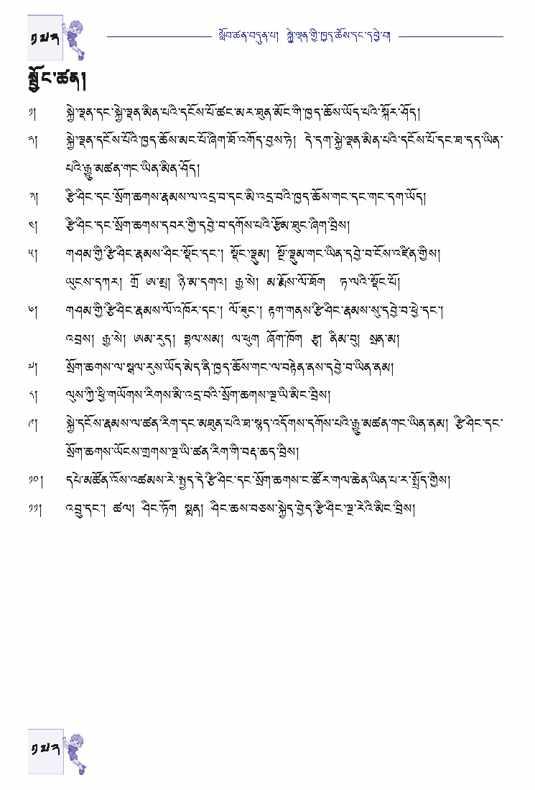 ༡༥༢
སློབ་ཚན་བདུན་པ། སྐྱེ་ལྡན་གྱི་ཁྱད་ཆོས་དང་དབྱེ་བ།
སྦྱོང་ཚན།
༡། སྐྱེ་ལྡན་དང་སྐྱེ་ལྡན་མིན་པའི་དངོས་པོ་ཚང་མར་ཐུན་མོང་གི་ཁྱད་ཆོས་ཡོད་པའི་སྐོར་ཤོད།
༢། སྐྱེ་ལྡན་དངོས་པོའི་ཁྱད་ཆོས་མང་པོ་ཞིག་ཐོ་འགོད་བྱས་ཏེ། དེ་དག་སྐྱེ་ལྡན་མིན་པའི་དངོས་པོ་དང་ཐ་དད་ཡིན་
པའི་རྒྱུ་མཚན་གང་ཡིན་མིན་ཤོད།
༣། རྩི་ཤིང་དང་སྲོག་ཆགས་རྣམས་ལ་འདྲ་བ་དང་མི་འདྲ་བའི་ཁྱད་ཆོས་གང་དང་གང་དག་ཡོད།
༤། རྩི་ཤིང་དང་སྲོག་ཆགས་དབར་གྱི་དབྱེ་བ་དགོས་པའི་རྩོམ་ཐུང་ཞིག་བྲིས།
༥། གཤམ་གྱི་རྩི་ཤིང་རྣམས་ཤིང་སྡོང་དང་། སྡོང་ལྡུམ། སྔོ་ལྡུམ་གང་ཡིན་དབྱེ་བ་ངོས་འཛིན་གྱིས།
ཡུངས་དཀར། གྲོ ཨ་མྲ། ཉི་མ་དགའ། རྒྱ་སེ། མ་རྨོས་ལོ་ཐོག ཏ་ལའི་སྡོང་པོ།
༦། གཤམ་གྱི་རྩི་ཤིང་རྣམས་ལོ་འཁོར་དང་། ལོ་ཟུང་། རྟག་གནས་རྩི་ཤིང་རྣམས་སུ་དབྱེ་བ་ཕྱེ་དང་།
འབྲས། རྒྱ་སེ། ཨམ་རུད། ལ་ཕུག ནིམ་བུ། སྲན་མ།
༧། སྲོག་ཆགས་ལ་སྒལ་རུས་ཡོད་མེད་ནི་ཁྱད་ཆོས་གང་ལ་བརྟེན་ནས་དབྱེ་བ་ཡིན་ནམ།
༨། ལུས་ཀྱི་ཕྱི་གཡོགས་རིགས་མི་འདྲ་བའི་སྲོག་ཆགས་ལྔ་ཡི་མིང་བྲིས།
༩། སྐྱེ་དངོས་རྣམས་ལ་ཚན་རིག་དང་མཐུན་པའི་ཐ་སྙད་འདོགས་དགོས་པའི་རྒྱུ་མཚན་གང་ཡིན་ནམ། རྩི་ཤིང་དང་
སྲོག་ཆགས་ཡོངས་གྲགས་ལྔ་ཡི་ཚན་རིག་གི་བརྡ་ཆད་བྲིས།
༡༠། དཔེ་མཚོན་འོས་འཚམས་རེ་སྤྱད་དེ་རྩི་ཤིང་དང་སྲོག་ཆགས་ང་ཚོར་གལ་ཆེན་ཡིན་པ་ར་སྤྲོད་གྱིས།
༡༡། འབྲུ་དང་། ཚལ། ཤིང་ཏོག སྨན། ཤིང་ཆས་བཅས་སྐྱེད་བྱེད་རྩི་ཤིང་ལྔ་རེའི་མིང་བྲིས།
༡༥༢